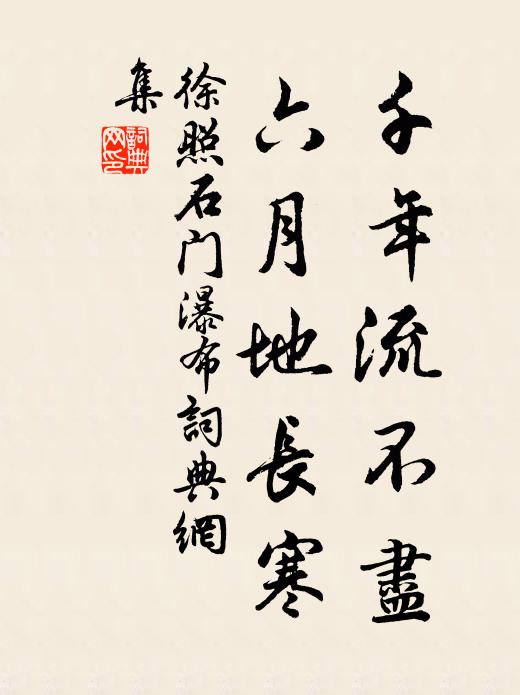 千年流不盡
六月地長寒
徐照石门瀑布詞典網
集
詞典
网印